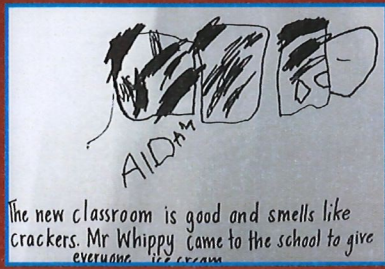 AIDAN
The new classroom is good and smells like
crackers. Mr Whippy came to the school to give
everyone ice cream